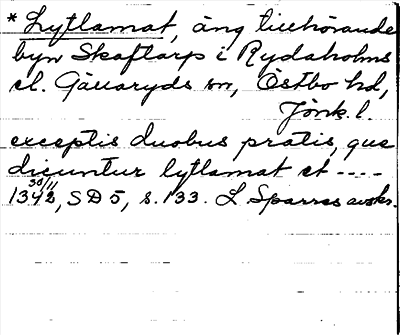 * Lytlamat, äng tillhörande
byn Skaftarp i Rydaholms
el. Gällaryds sn, Östbo hd,
Jönk. l.
exceptis duobus pratis, que
dicuntur lytlamat et ----
30/11 1342, SD 5, s. 133. L Sparres avskr.